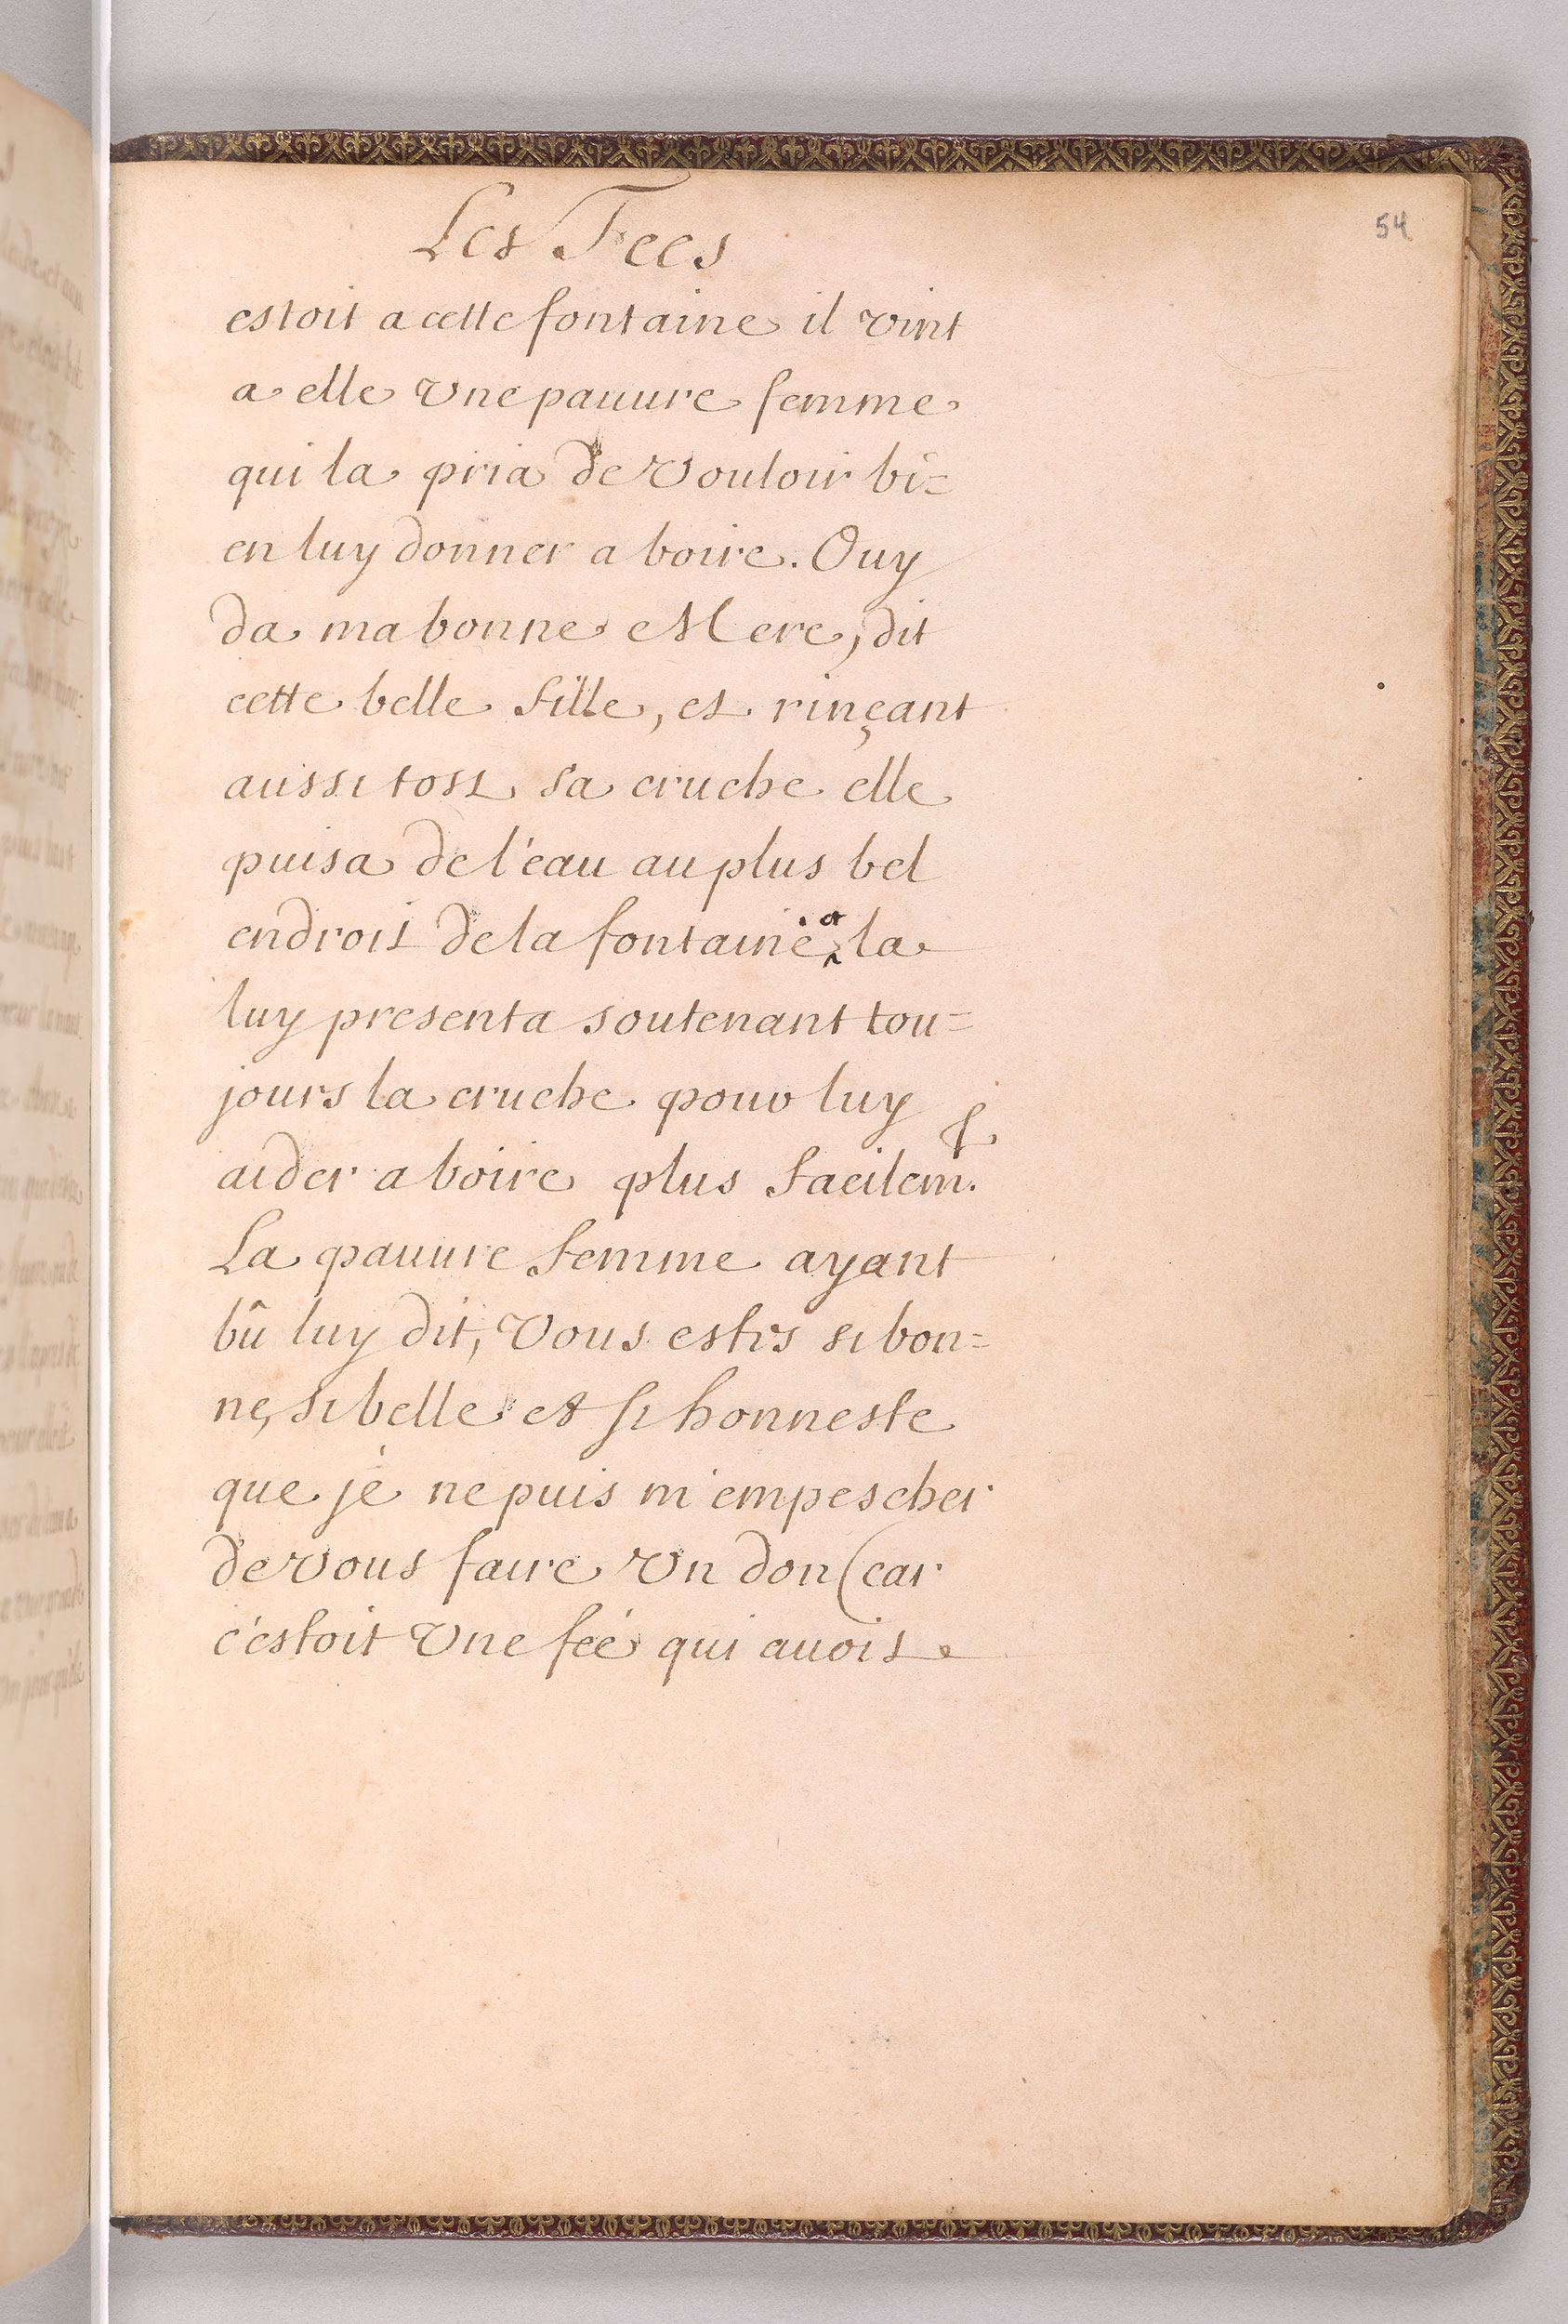 54
Les Fees
estoit a cette fontaine il vint
a elle vne pauure femme
qui la pria de vouloir bi=
en luy donner a boire. Ouy
da ma bonne Mere, dit
cette belle fille, et rinçant
aussi tost sa cruche elle
puisa de l'éau au plus bel
endroit de la fontaine et la
luy presenta soutenant tou=
jours la cruche pour luy
aider a boire plus facilem.t
La pauure femme ayant
bû luy dit, Vous estes si bon=
ne, si belle et si honneste
que je ne puis m'empescher
de vous faire vn don (car
c'estoit vne feé qui auoit